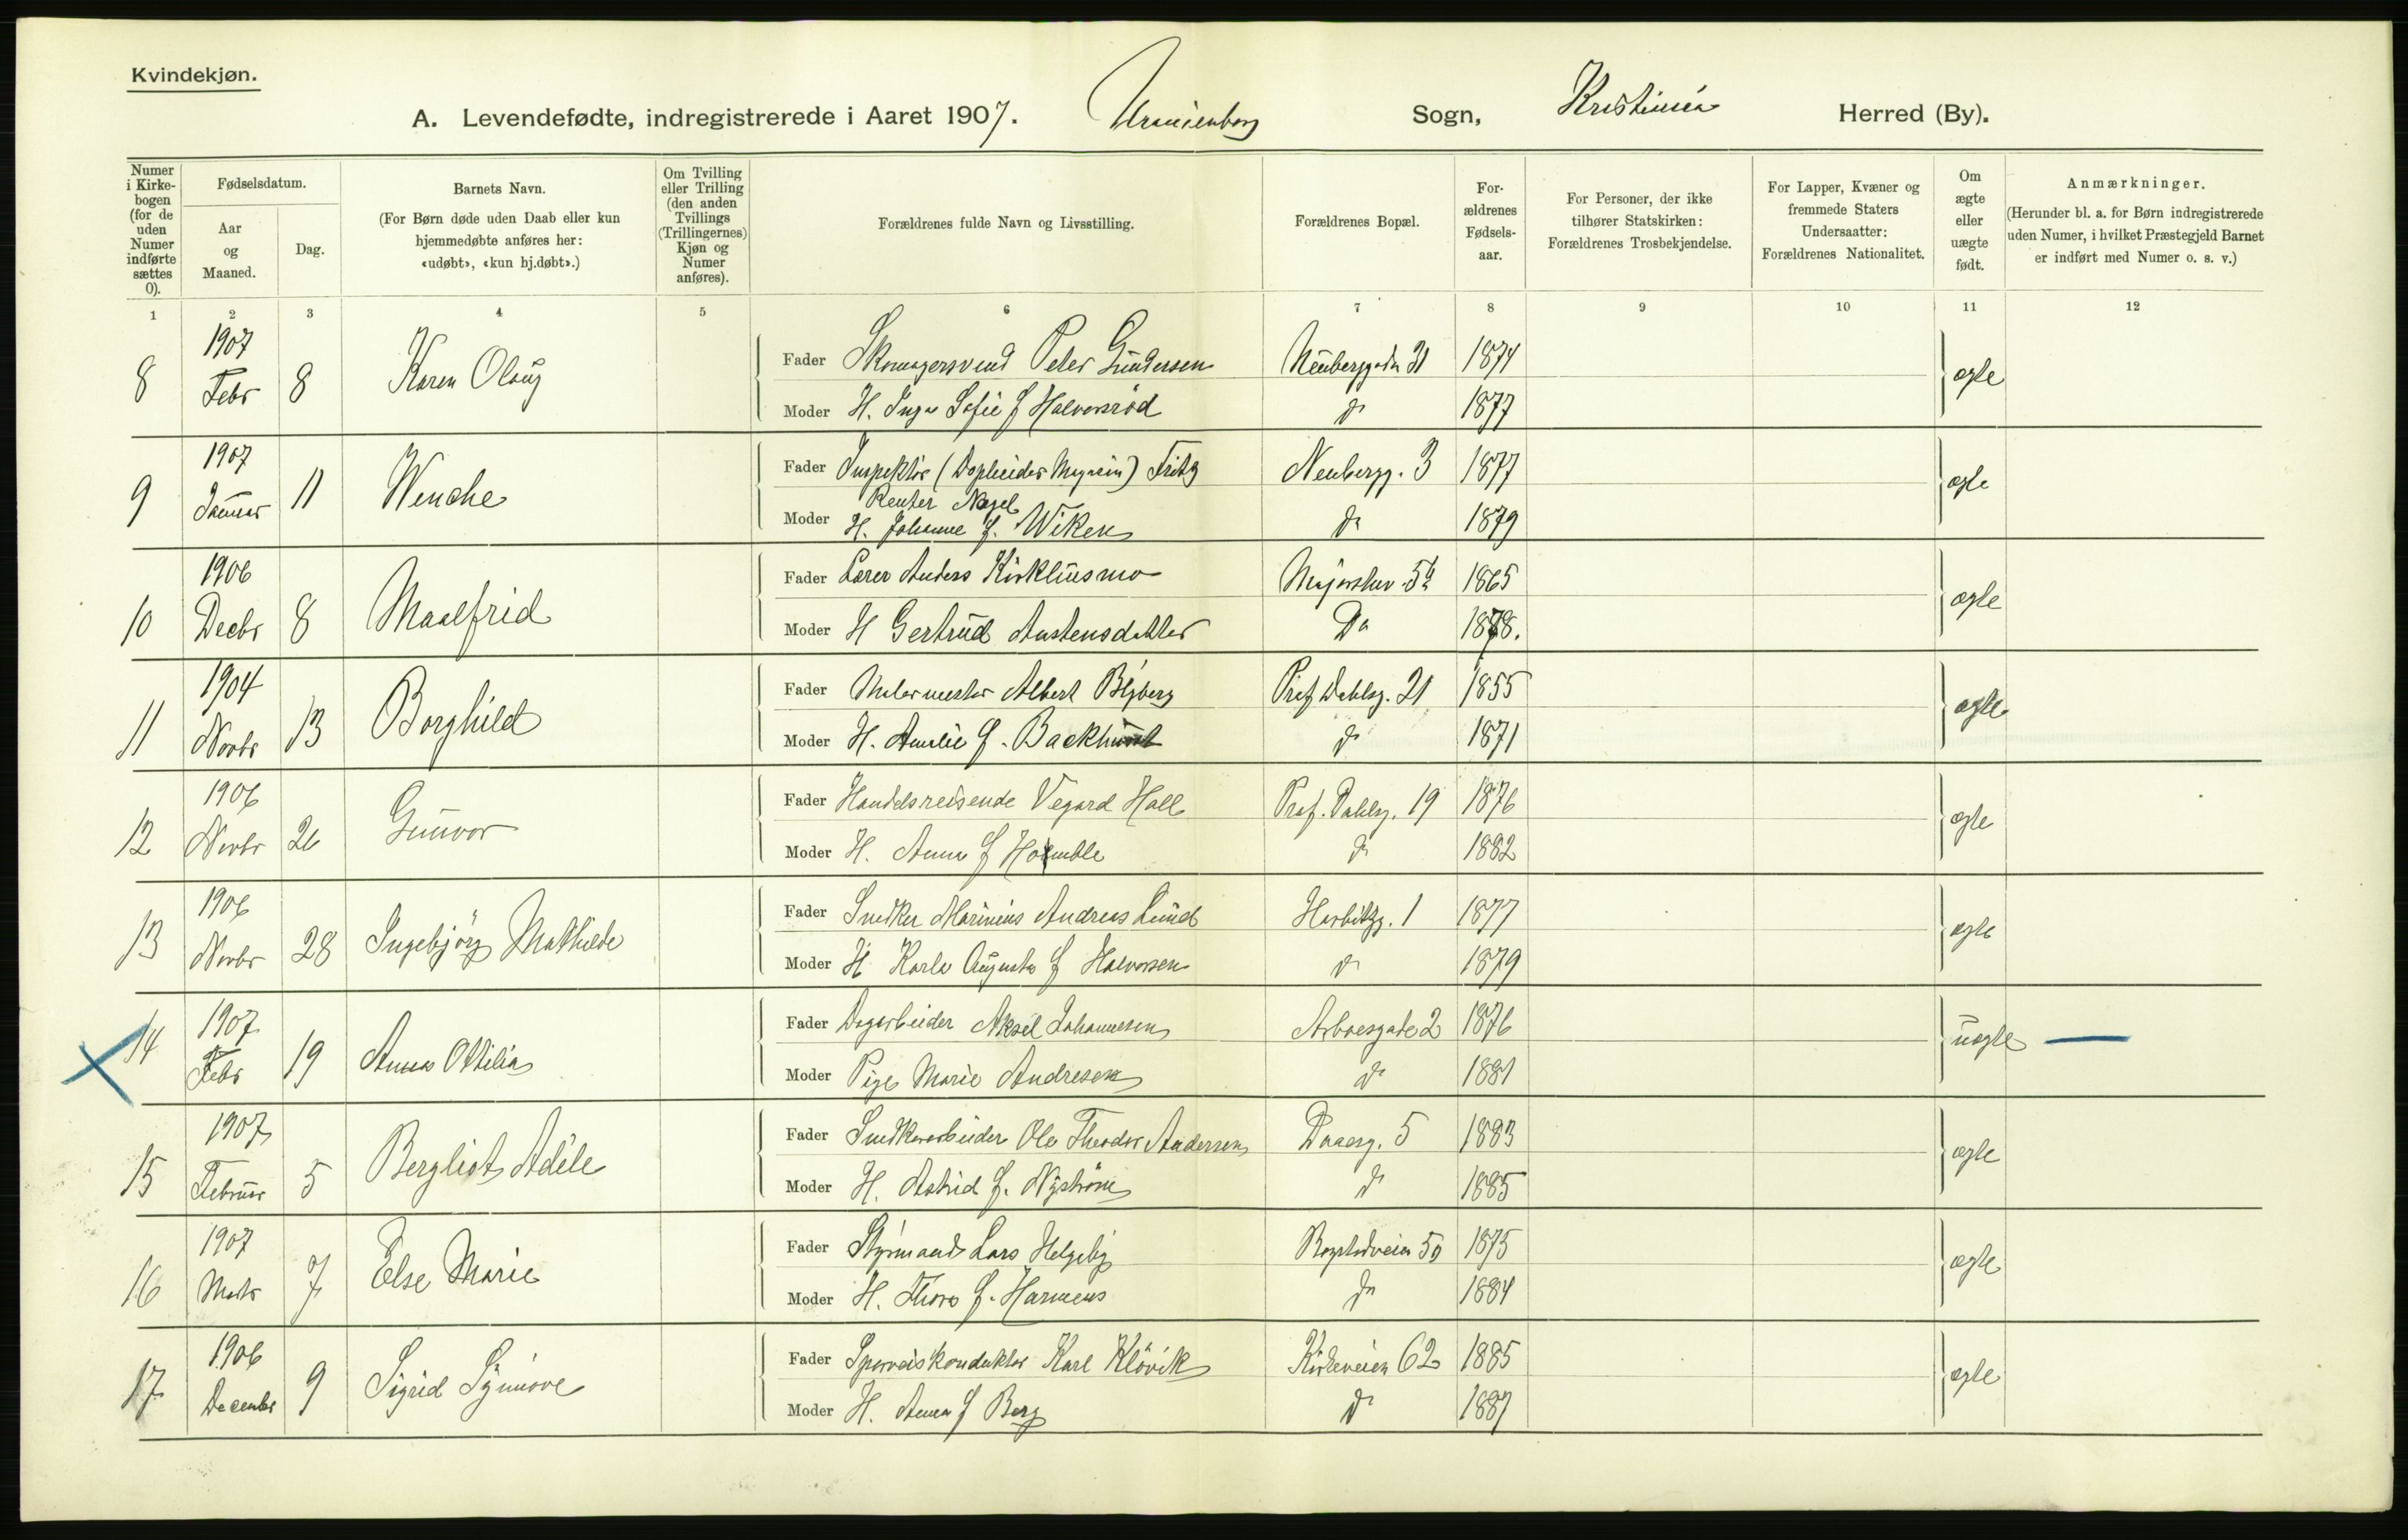 Kvindekjøn.
A. Levendefødte, indregistrerede i Aaret 1907. Uranienborg Sogn, Kristiania Herred (By).
Numer i Kirkebogen (for de uden Numer indførte sættes 0).
Fødselsdatum.
Aar og Maaned.
Dag.
Barnets Navn.
(For Børn døde uden Daab eller kun hjemmedøbte anføres her: «udøbt», «kun hj.døbt».)
Om Tvilling eller Trilling (den anden Tvillings (Trillingernes) Kjøn og Numer anføres).
Forældrenes fulde Navn og Livsstilling.
Forældrenes Bopæl.
Forældrenes Fødselsaar.
For Personer, der ikke tilhører Statskirken: Forældrenes Trosbekjendelse.
For Lapper, Kvæner og fremmede Staters Undersaatter: Forældrenes Nationalitet.
Om ægte eller uægte født.
Anmærkninger.
(Herunder bl. a. for Børn indregistrerede uden Numer, i hvilket Præstegjeld Barnet er indført med Numer o. s. v.)
1 2 3 4 5 6 7 8 9 10 11 12
8 1907 Febr 8 Karen Olaug Fader Skomagersvend Peter Gundersen Neuberggdn 31 1874 ægte
Moder H. Inga Sofie f Halvorsröd do 1877
9 1907 Januar 11 Wenche Fader Inspektör (Magasin) Fritz Neubergg. 3 1877 ægte
Reuter Nagel
Moder H. Johanne f. Wiken do 1879
10 1906 Decbr 8 Maalfrid Fader Lærer Anders Kirkhusmo Majorstuv 5 1865 ægte
Moder H Gertrud Austensdatter Do 1878.
11 1904 Novbr 13 Borghild Fader Malermester Albert Blyberg Prof Dahlsg. 21 1855 ægte
Moder H. Amalie f. do 1871
12 1906 Novbr 26 Gunvor Fader Handelsreisende Vegard Hall Prof. Dahlsg. 19 1876 ægte
Moder H. Anna f do 1882
13 1906 Novbr 28 Ingebjörg Mathilde Fader Snedker Marinius Andreas Lund Harbitzg. 1 1877 ægte
Moder H Karla Augusta f Halvorsen do 1879
14 1907 Febr 19 Anna Ottilia Fader Dagarbeider Aksel Johannesen Arboesgate 2 1876 uægte
Moder Pige Marie Andresen do 1881
15 1907 Februar 5 Bergliot Adéle Fader Snedkerarbeider Ole Theodor Andersen Daasg. 5 1883 ægte
Moder H. Astrid f. Nyström do 1885
16 1907 Marts 7 Else Marie Fader Styrmand Lars Helgeby Bogstadveien 50 1875 ægte
Moder H. Thora f. Harmens do 1884
17 1906 Decembr 9 Sigrid Synnöve Fader Sporveiskonduktör Karl Klövik Kirkeveien 62 1885 ægte
Moder H. Anna f Berg do 1887